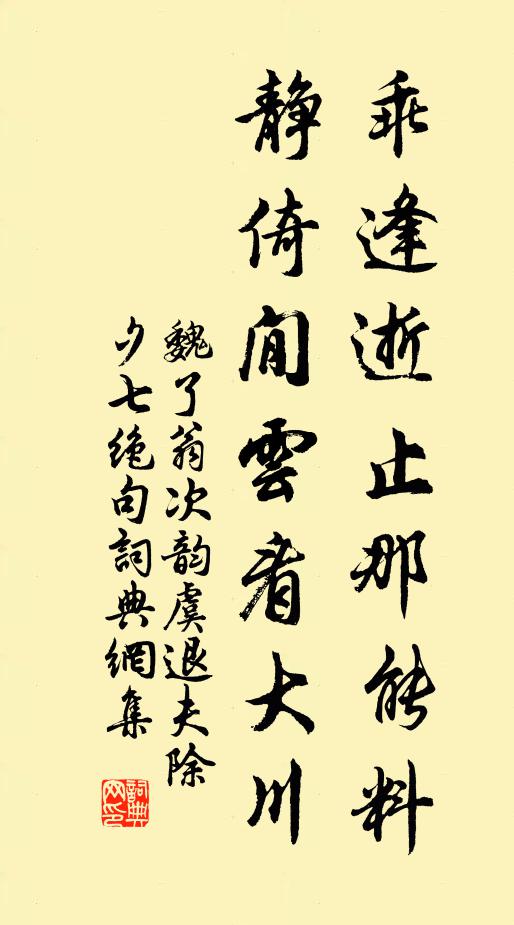 乘逢逝止那能料
静倚閒雲看大川
魏了翁次韵虞退夫除
夕七绝句詞典網集
詞典
网印